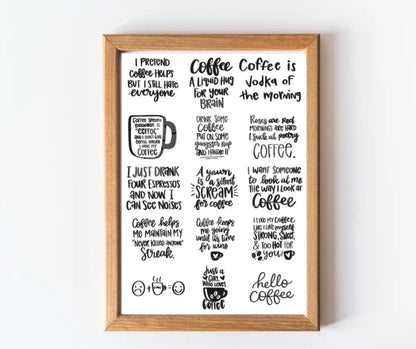 I PRETEND
Coffee HELPS
BUT I STILL HATE
everyone
Coffee
A LIQUID HUG
FOR YOUR
BRAIN
Coffee is
vodka of
the morning
Coffee Spelled
Backwards is
"EEFFOC"
COFFEE
DRINK SOME
Coffee
PUT ON SOME
gangster rap
AND HANDLE IT
Roses are Red
MORNINGS ARE HARD
I Suck at poetry
COFFEE.
I JUST DRANK
FOUR ESPRESSOS
AND NOW I
CAN SEE NOISES
A yawn
is a silent
SCREAM
for coffee
I WANT SOMEONE
to look at me
THE WAY I LOOK AT
Coffee
Coffee helps
ME MAINTAIN MY
"Never killed anyone"
Streak.
Coffee keeps
me going
until its time
for wine
I LIKE MY COFFEE
LIKE I LIKE myself
STRONG, Sweet,
& TOO HOT FOR
you!
Just a
GIRL
WHO LOVES
Coffee
hello
coffee